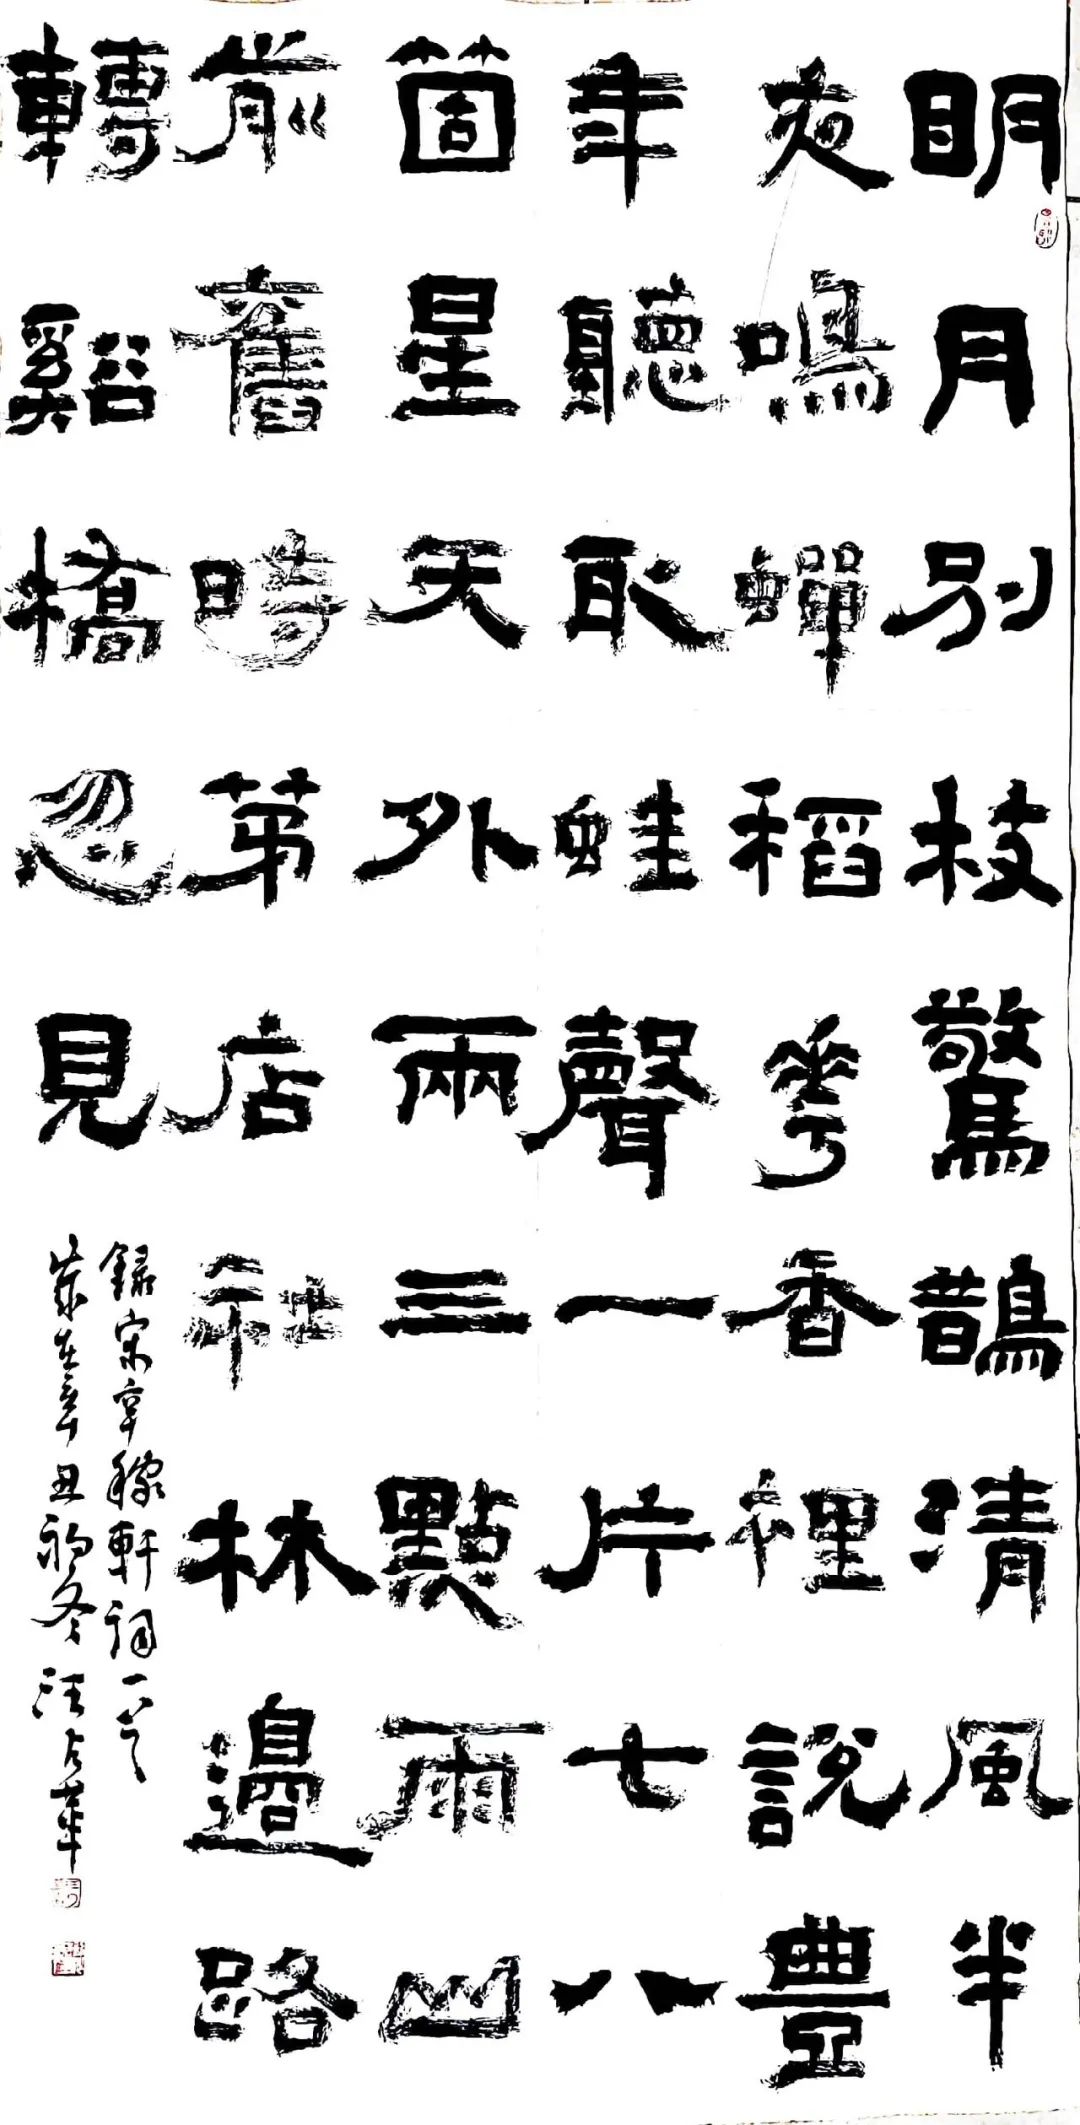 眀月别枝驚鵲清風半
夜鳴蟬稻華香裡說豐
年聽取蛙聲一片七八
箇星天外兩三點雨山
前舊時茅店社林邊路
轉谿橋忽見
録宋辛稼軒詞一首
歲在辛丑初冬汪占